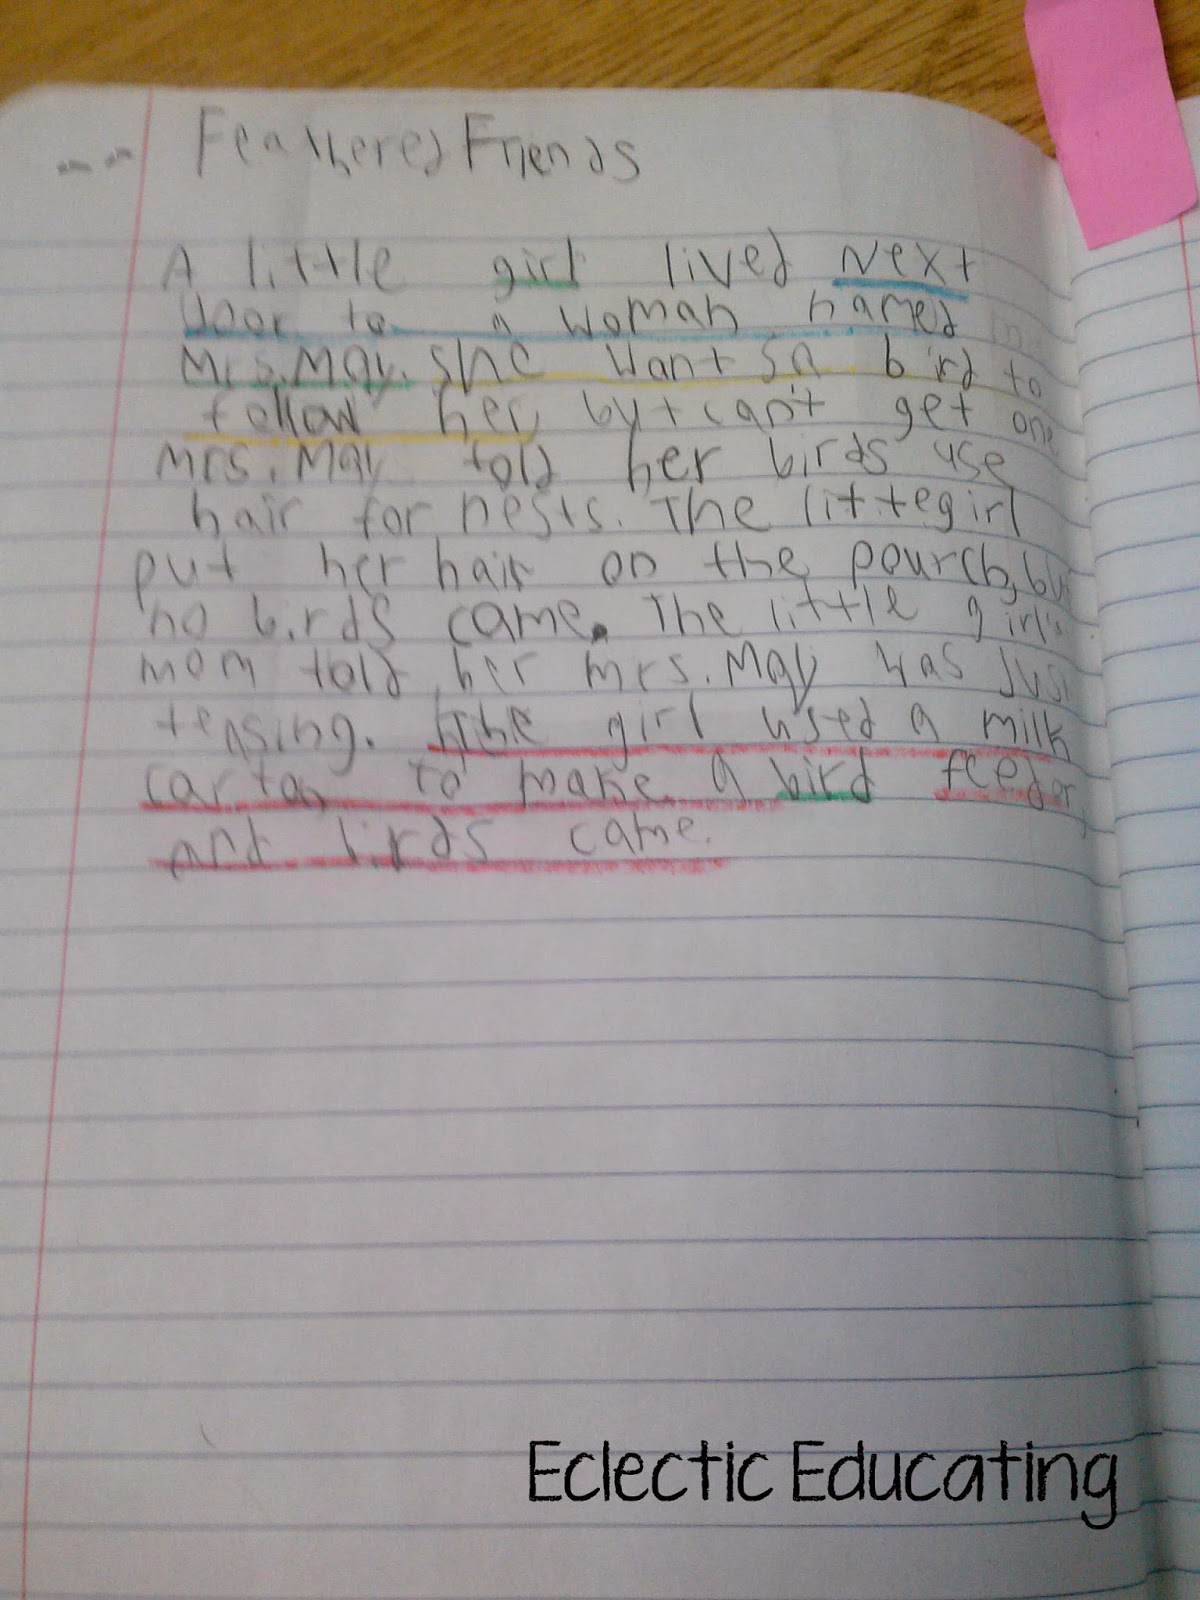 Feathered Friends
A little girl lived Next
door to a woman named
Mrs. May. She wants a bird to
follow her, but can't get one
Mrs. May told her birds use
hair for nests. The litte girl
put her hair on the pourch, but
no birds came. The little girl's
mom told her mrs. May was Just
teasing. The girl used a milk
carton to make a bird feedor,
and birds came.
Eclectic Educating